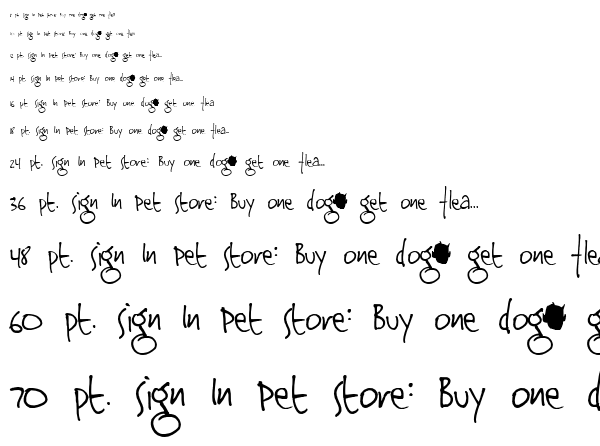 8 pt. Sign In Pet Store: Buy one dog, get one flea...
10 pt. Sign In Pet Store: Buy one dog, get one flea...
12 pt. Sign In Pet Store: Buy one dog, get one flea...
14 pt. Sign In Pet Store: Buy one dog, get one flea...
16 pt. Sign In Pet Store: Buy one dog, get one flea
18 pt. Sign In Pet Store: Buy one dog, get one flea...
24 pt. Sign In Pet Store: Buy one dog, get one flea...
36 pt. Sign In Pet Store: Buy one dog, get one flea...
48 pt. Sign In Pet Store: Buy one dog, get one flea
60 pt. Sign In Pet Store: Buy one dog, g
70 pt. Sign In Pet Store: Buy one d